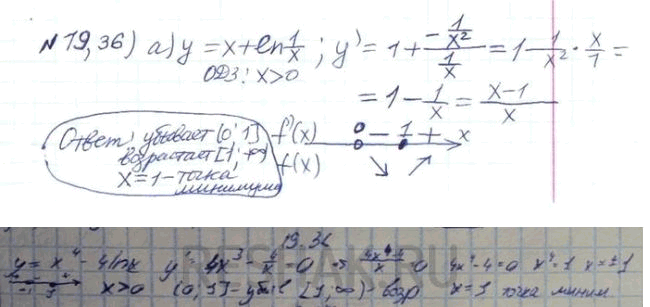 №19,36) а) y = x + ln 1/x ; y' = 1 + (-1/x²)/(1/x) = 1 - 1/x² · x/1 =
ОДЗ: x>0
= 1 - 1/x = (x-1)/x
Ответ: убывает (0; 1] f'(x) - 1 + x
возрастает [1; +∞) f(x) ↘ ↗
x = 1 - точка
минимума
19.36
y = x⁴ - 4lnx y' = 4x³ - 4/x = 0 => (4x⁴-4)/x = 0 4x⁴-4=0 x⁴=1 x=±1
x>0 (0, 1] - убыв [1; ∞) - возр x=1 точка миним
RESHAK.RU